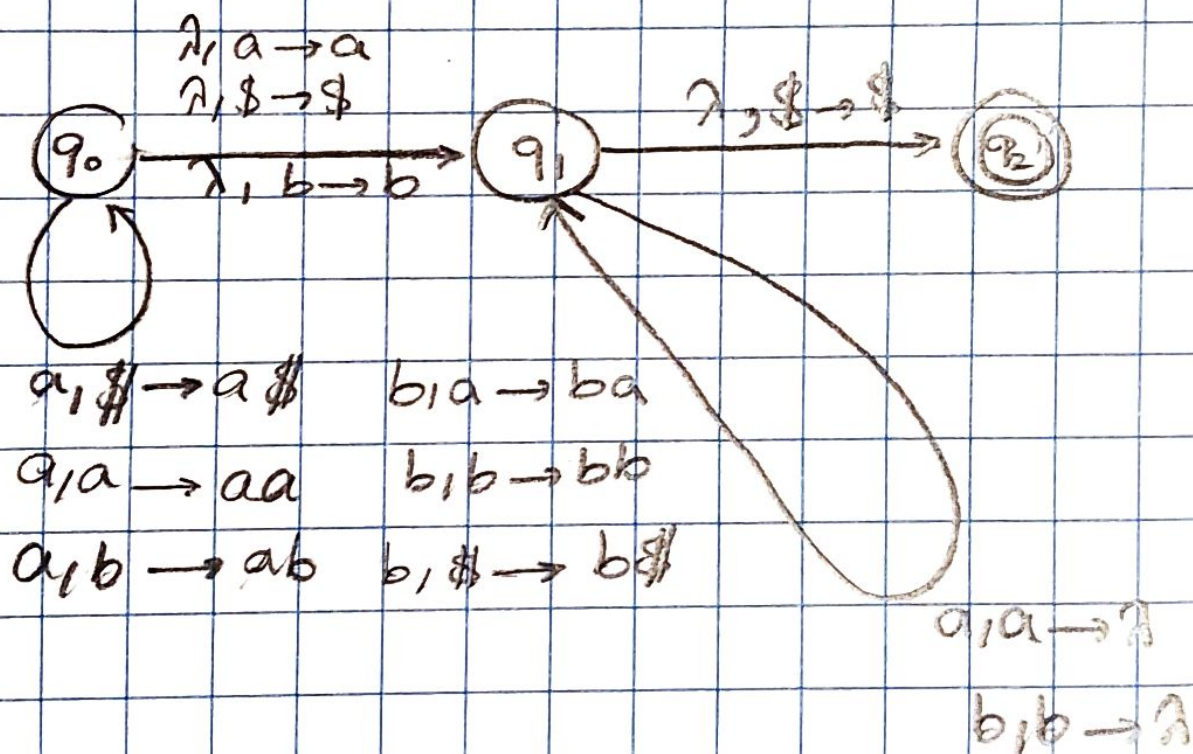 λ, a → a
λ, $ → $
λ, $ → $
q₀
q₁
q₂
λ, b → b
a, $ → a $
b, a → ba
a, a → aa
b, b → bb
a, b → ab
b, $ → b$
a, a → λ
b, b → λ